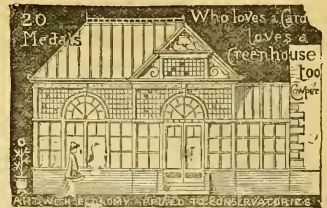 20
Medals
Who loves a Gard
loves a
Greenhouse
too
Cowper
ART WITH ECONOMY APPLIED TO CONSERVATORIES